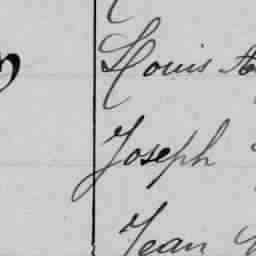 Louis
Joseph
Jean